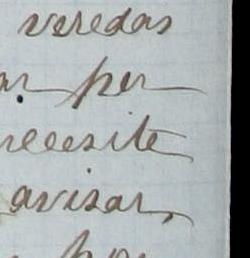 veredas
ar per
necesite
avisar,